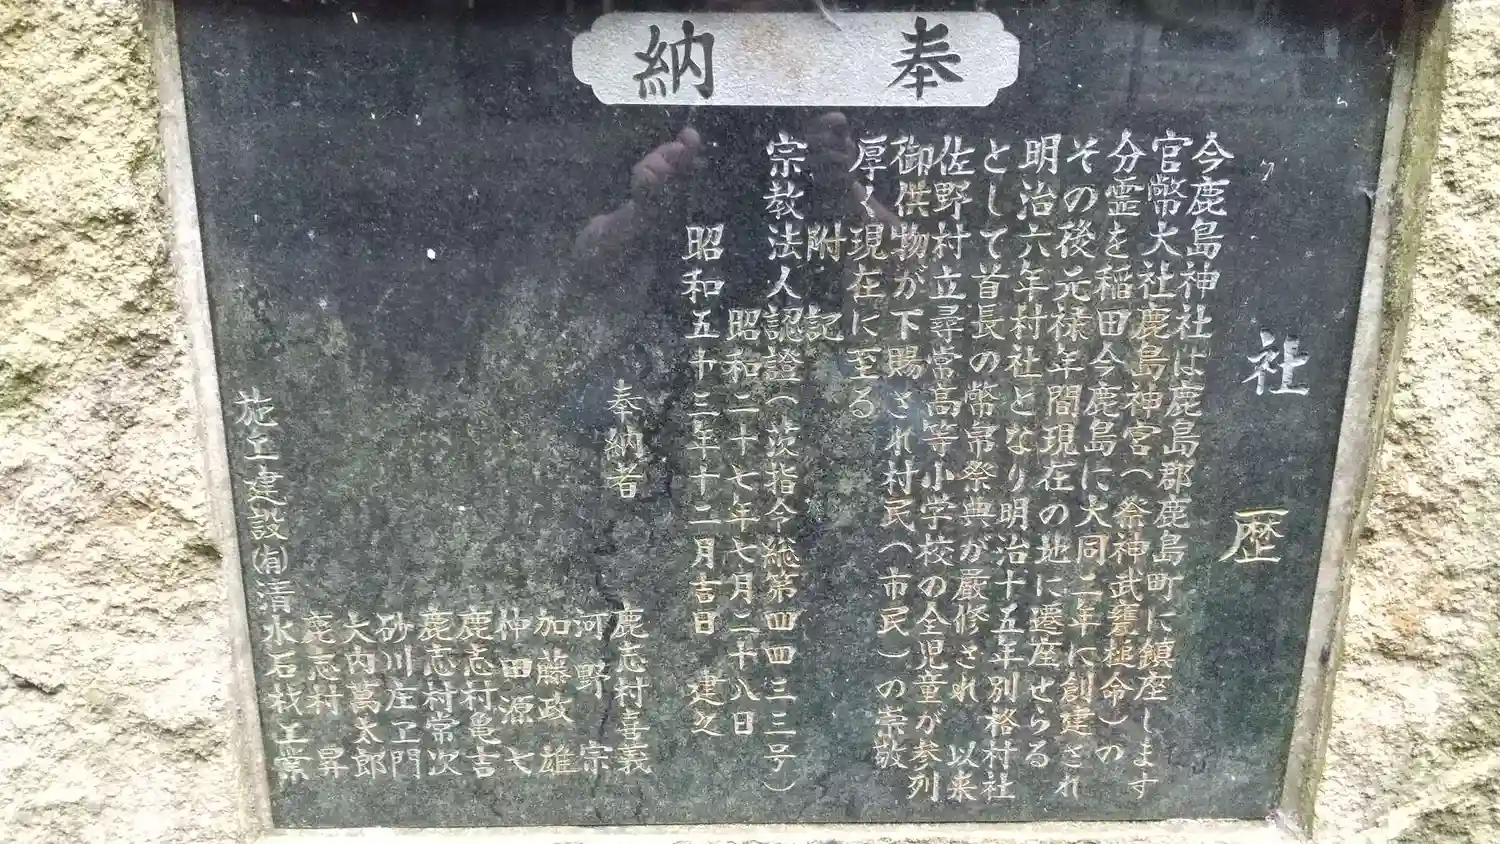 奉納
社歴
今鹿島神社は鹿島郡鹿島町に鎮座します
官幣大社鹿島神宮（祭神武甕槌命）の
分霊を稲田今鹿島に大同二年に創建され
その後元禄年間現在の地に遷座せらる
明治六年村社となり明治十五年別格村社
として首長の幣帛祭典が厳修され 以来
佐野村立尋常高等小学校の全児童が参列
御供物が下賜され村民（市民）の崇敬
厚く現在に至る
附記
宗教法人認證（茨指令総第四四三三号）
昭和二十七年七月二十八日
昭和五十三年十二月吉日 建之
奉納者
鹿志村喜義
河野 宗
加藤政雄
仲田源七
鹿志村亀吉
鹿志村常次
砂川庄ヱ門
大内萬太郎
鹿志村 昇
施工建設㈲清水石材工業